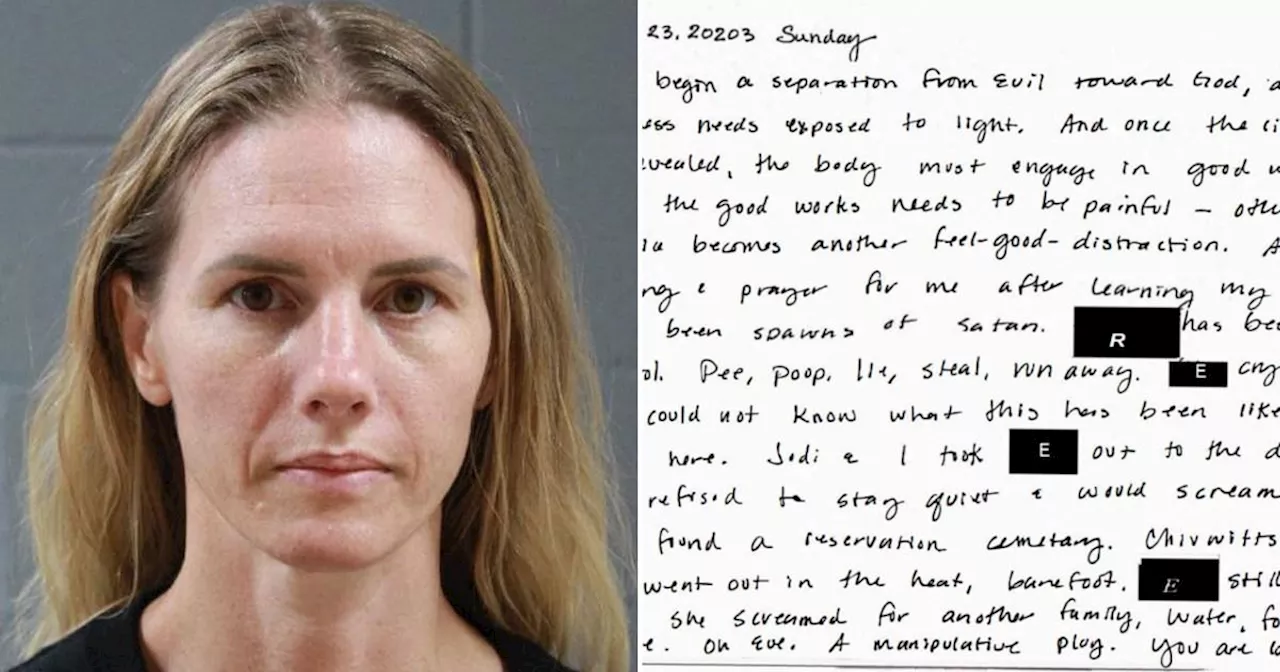 23, 20203 Sunday
begin a separation from Evil toward God, a
ess needs exposed to light. And once the
evealed, the body must engage in good w
the good works needs to be painful - othe
ia becomes another feel-good-distraction. A
ng & prayer for me after learning my
been spawns of satan. R has bee
ol. Pee, poop, lie, steal, run away. E cry
could not know what this has been like
here. Jodi & I took E out to the d
refused to stay quiet & would scream
found a reservation cemetary. Chivwitts
went out in the heat, barefoot. E still
she screamed for another family, water, fo
e. on Eve. A manipulative ploy. You are